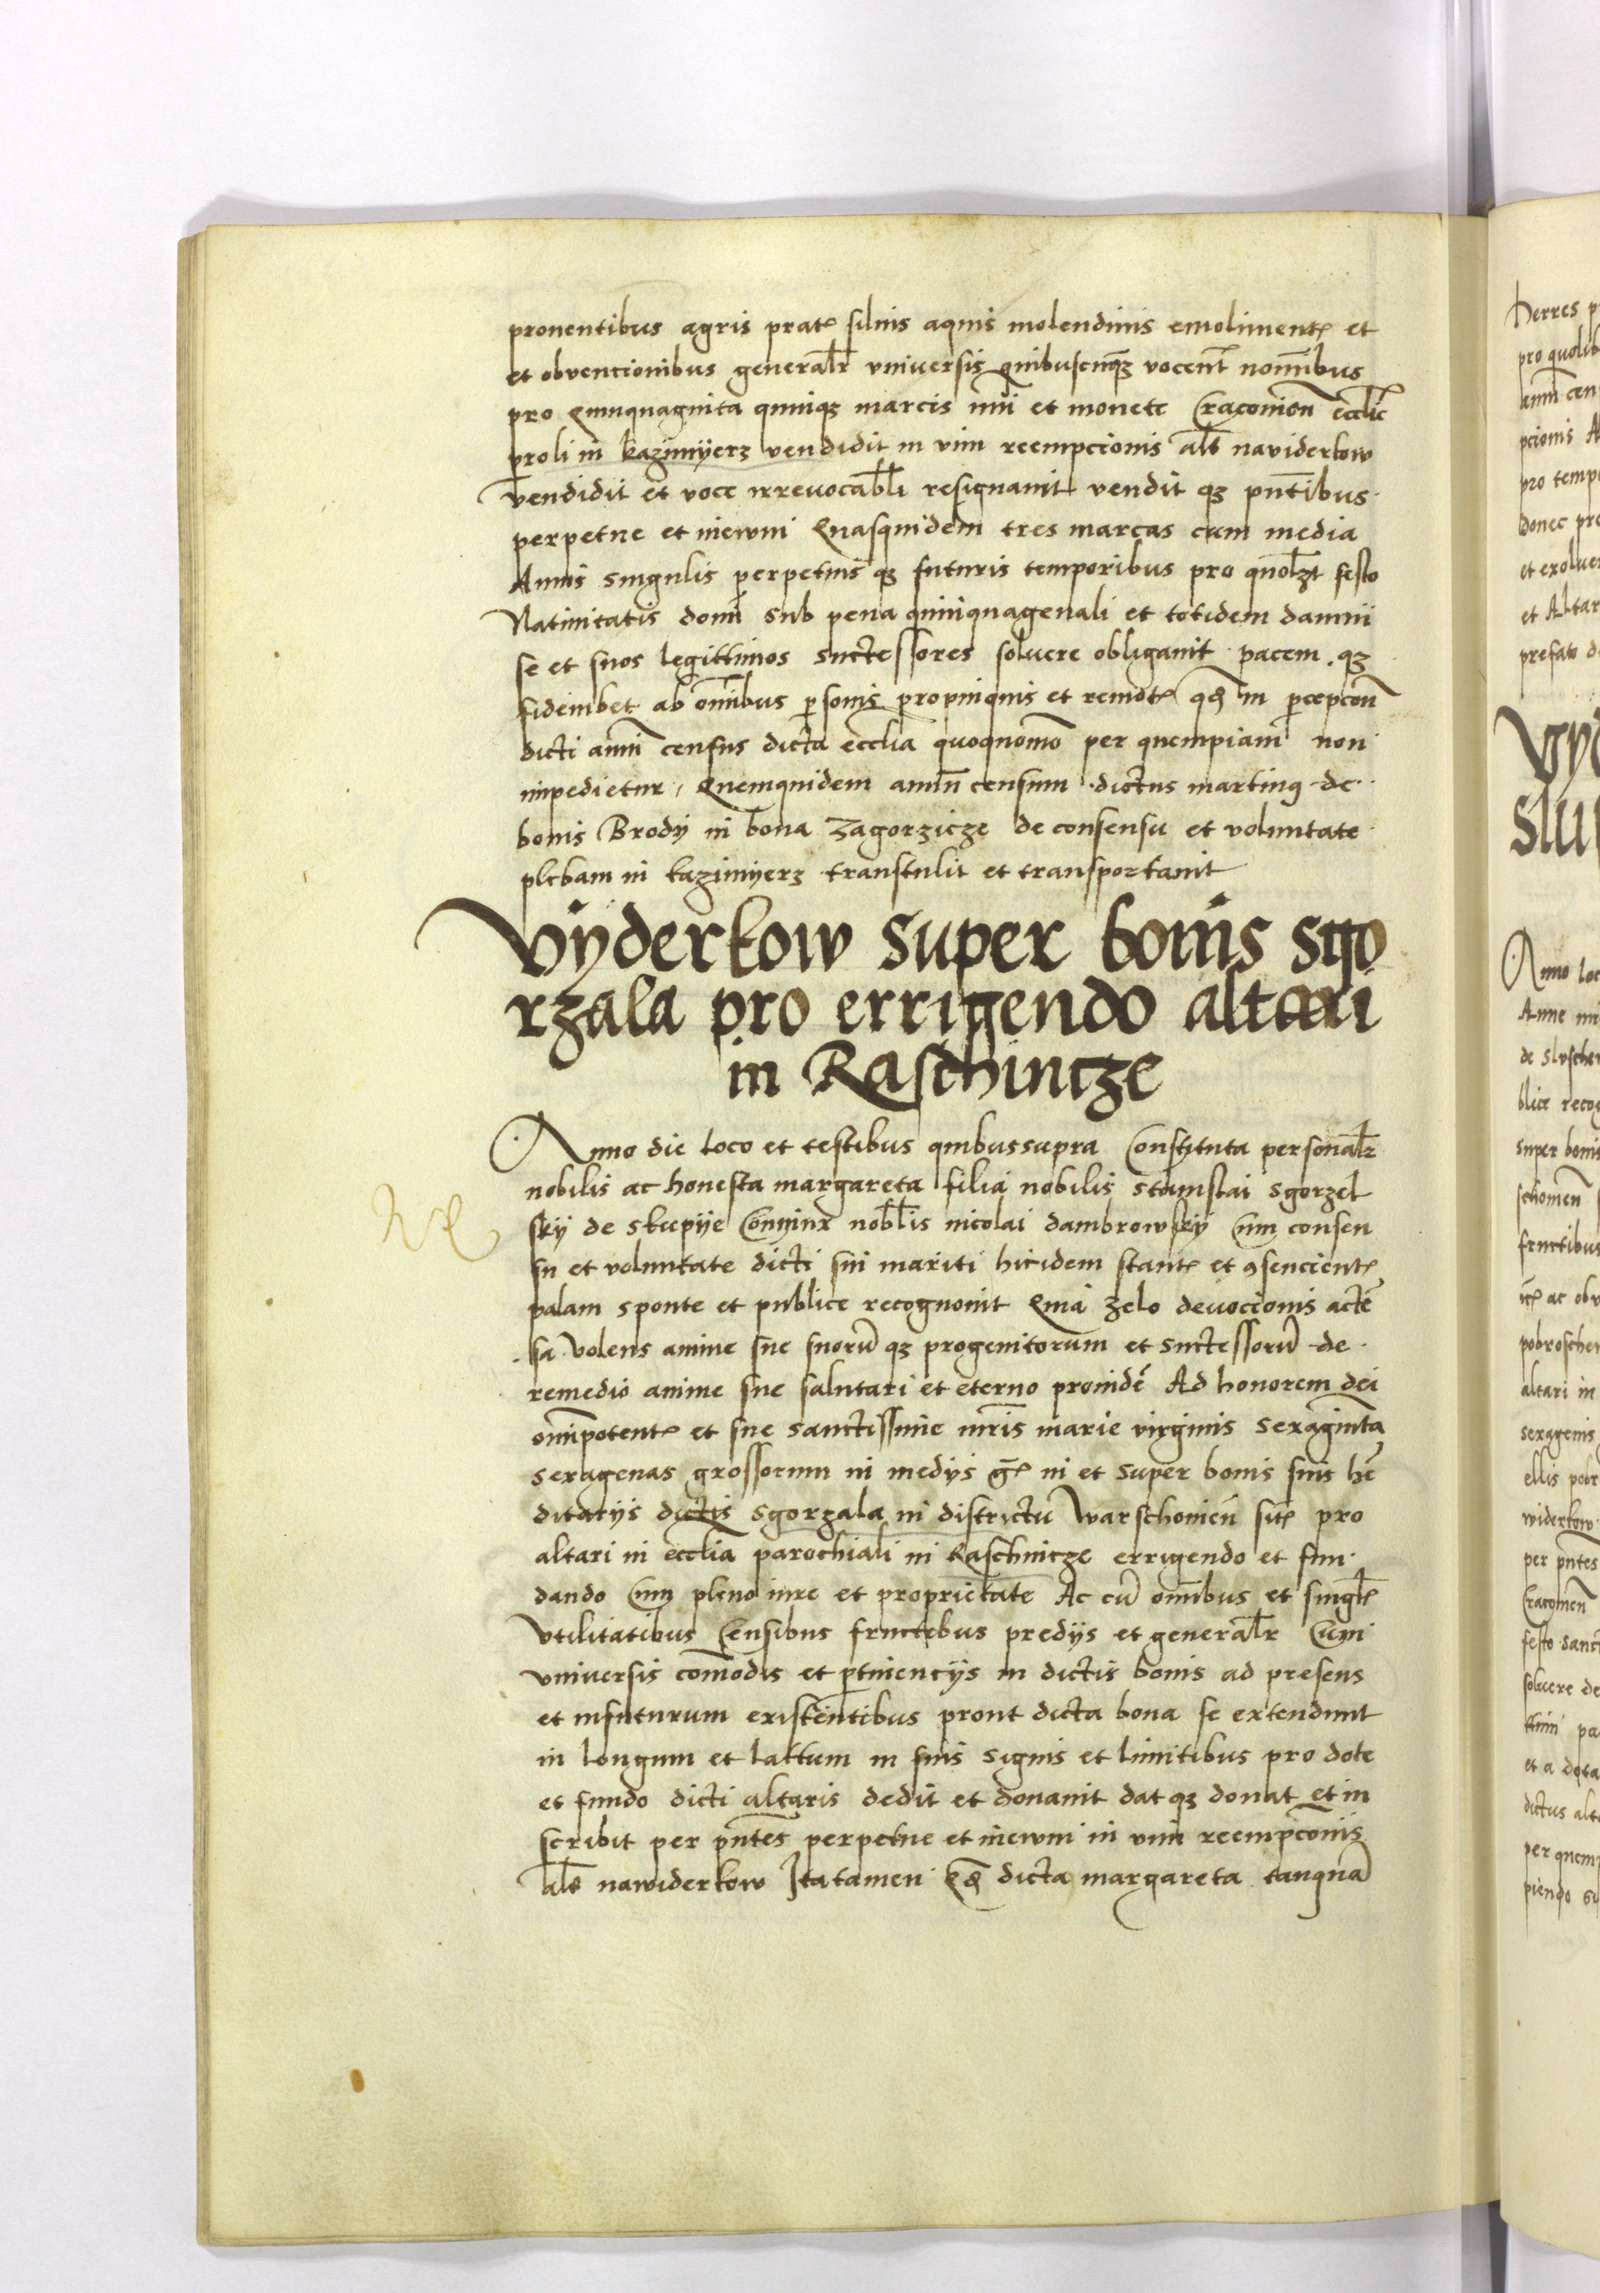 pronentibus agris pratꝭ siluis aquis molendinis emolimentꝭ et
et obvencionibus generalr̄ vniversis quibuscūqꝫ vocent̄ nomībus
pro Quinquaginta quinqꝫ marcis nūi et monete Craconien̄ eccliē
proli in kazimyerz vendidit in vim reempcionis al̄s naviderkow
vendidit et voce irreuocabl̄i resignauit vendit qꝫ pn̄tibus
perpetue et inewm Quasquidem tres marcas cum media
Annis singulis perpetuis qꝫ futuris temporibus pro quolꝫt festo
Natiuitatis domī sub pena quinquagenali et totidem damni
se et suos legittimos suctessores soluere obligauit pacem qꝫ
fideiubet ab om̄ibus ꝑsonis propinquis et remotꝭ qꝙ in ꝑcepcōn
dicti anni census dicta ecclia quoquomō per quempiam non
impedietur Quemquidem annū censum dictus martinꝯ de
bonis Brody in bona Zagorzicze de consensu et voluntate
plebani in kazimyerz transtulit et transportauit
Vyderkow super bonis sgo
rzala pro errigendo altari
in Raschincze
Anno die loco et testibus quibussupra Constituta personalr̄
nobilis ac honesta margareta filia nobilis stanislai sgorzel
sky de skupije Coniunx nobl̄is nicolai dambrowsky Cum consen
su et voluntate dicti sui mariti hicidem stantꝭ et ꝯsencientꝭ
palam sponte et publice recognouit Quia zelo deuocionis accē
sa volens anime sue suorū qꝫ progenitorum et suctessorū de
remedio anime sue salutari et eterno prouidē Ad honorem dei
omīpotentꝭ et sue sanctissime mr̄is marie virginis sexaginta
sexagenas grossorum in medys gꝭ in et super bonis suis hē
ditarijs dictis sgorzala in districtu warschouien̄ sitꝭ pro
altari in ecclia parochiali in Raschincze errigendo et fun
dando Cum pleno iure et proprietate Ac cū om̄ibus et singlꝭ
vtilitatibus Censibus fructebus predijs et generalr̄ Cum
vniversis comodis et ꝑtinencijs in dictis bonis ad presens
et infuturum existentibus prout dicta bona se extendunt
in longum et lattum in suis signis et limitibus pro dote
et fundo dicti altaris dedit et donauit dat qꝫ donat et in
scribit per pn̄tes perpetue et inewm in vim reempcōnis
al̄s nawiderkow Itatamen qꝙ dicta margareta tanquā